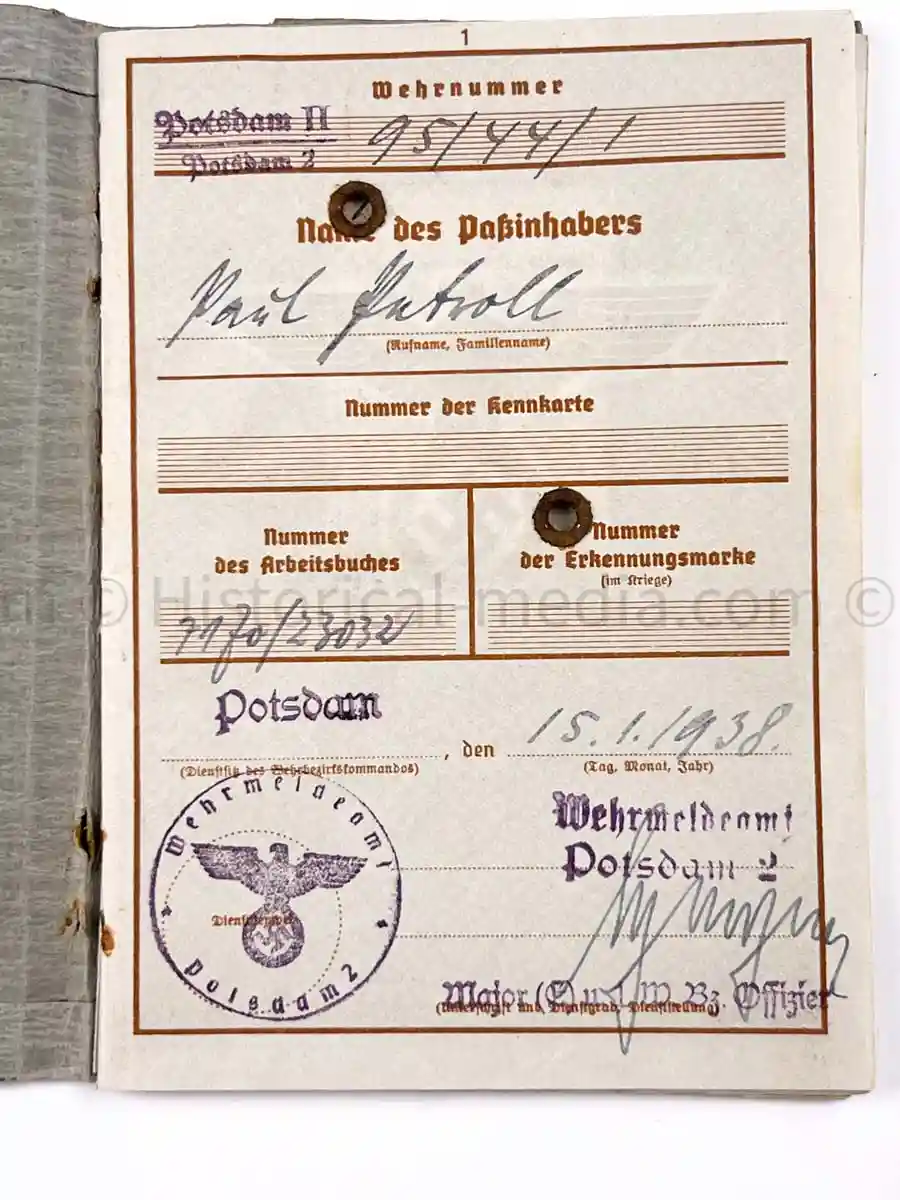 1
Wehrnummer
Potsdam II
Potsdam 2
95/44/1
Name des Paßinhabers
Paul Petroll
(Rufname, Familienname)
Nummer der Kennkarte
Nummer
des Arbeitsbuches
Nummer
der Erkennungsmarke
(im Kriege)
m © Historical-media.com ©
Potsdam
, den 15.1.1938.
(Dienstsitz des Wehrbezirkskommandos)
(Tag, Monat, Jahr)
Wehrmeldeamt
Potsdam 2
Wehrmeldeamt
Potsdam 2
Major (E) u. W. Bz. Offizier
(Unterschrift und Dienstgrad, Dienststellung)